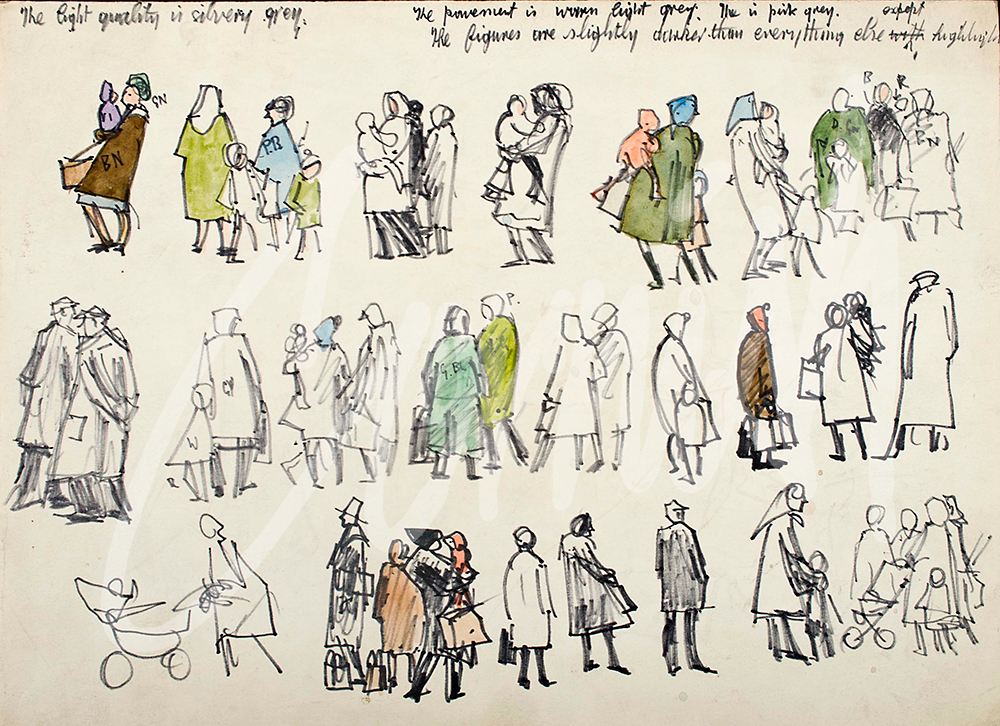 The light quality is silvery grey.
The pavement is warm light grey. The is pink grey. except
The figures are slightly darker than everything else with highlights
GN
VI
BN
P.B
D. Gn
B
R
BN
P.
G.BL
GY
W
R